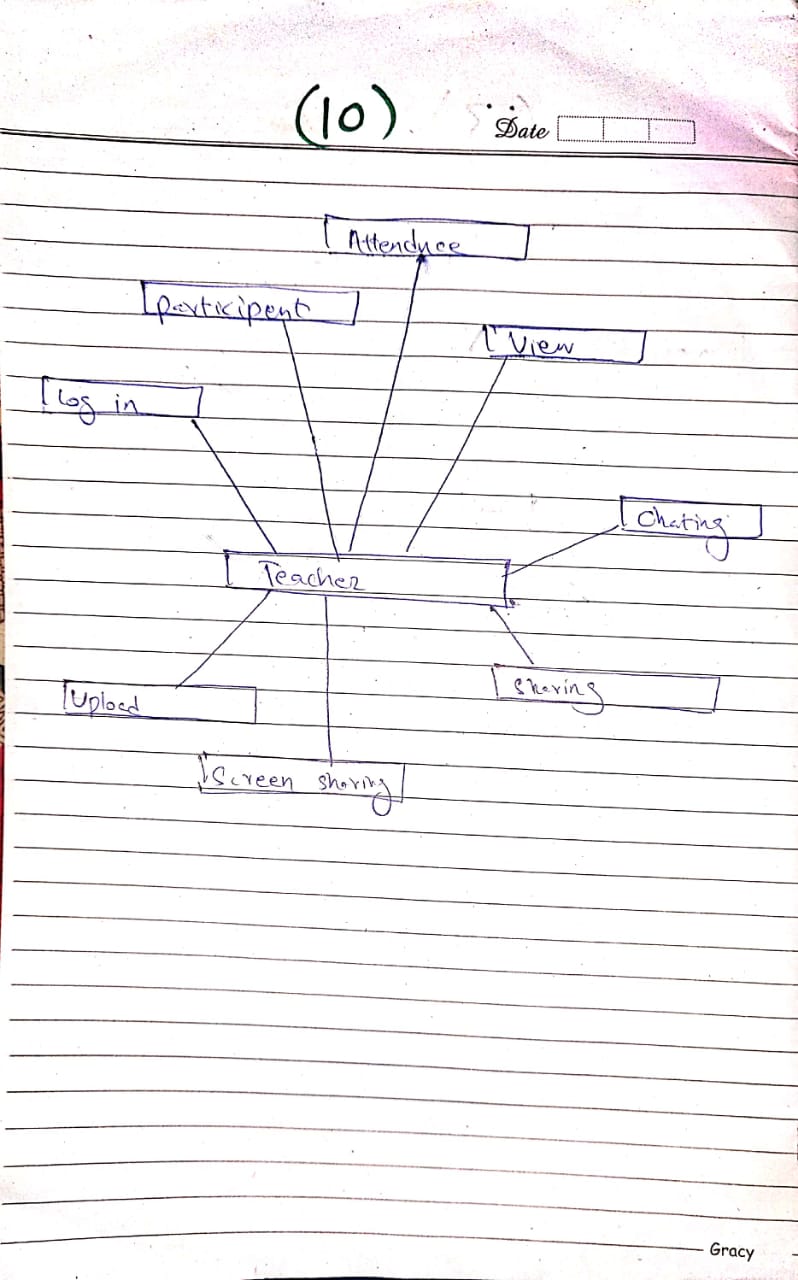 (10)
Date
Attenduce
participent
View
Log in
Chating
Teacher
Sharing
Upload
Screen sharing
Gracy